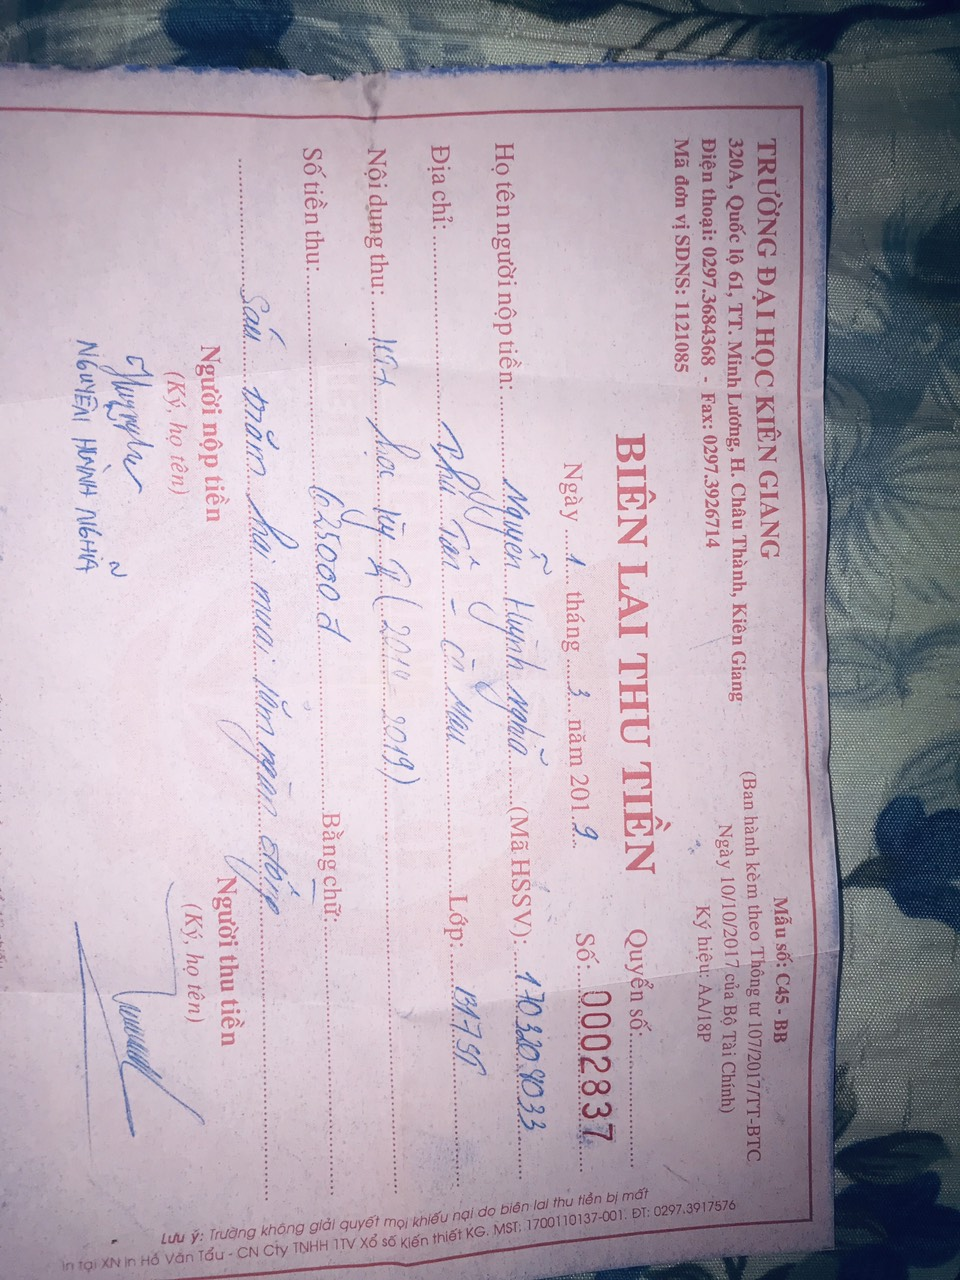 TRƯỜNG ĐẠI HỌC KIÊN GIANG
320A, Quốc lộ 61, TT. Minh Lương, H. Châu Thành, Kiên Giang
Điện thoại: 0297.3684368 - Fax: 0297.3926714
Mã đơn vị SDNS: 1121085
Mẫu số: C45 - BB
(Ban hành kèm theo Thông tư 107/2017/TT-BTC
Ngày 10/10/2017 của Bộ Tài Chính)
Ký hiệu: AA/18P
BIÊN LAI THU TIỀN
Quyển số:
Ngày 1 tháng 3 năm 2019
Số: 0002837
Họ tên người nộp tiền: Nguyễn Huỳnh Nghĩa (Mã HSSV):
Địa chỉ: Phú Tân - Cà Mau Lớp:
Nội dung thu: học kỳ
Số tiền thu: 625000đ Bằng chữ:
Sáu trăm hai mươi lăm ngàn đồng
Người nộp tiền
(Ký, họ tên)
NGUYỄN HUỲNH NGHĨA
Người thu tiền
(Ký, họ tên)
Lưu ý: Trường không giải quyết mọi khiếu nại do biên lai thu tiền bị mất
In tại XN In Hồ Văn Tẩu - CN Cty TNHH 1TV Xổ số Kiến thiết KG. MST: 1700110137-001. ĐT: 0297.3917576